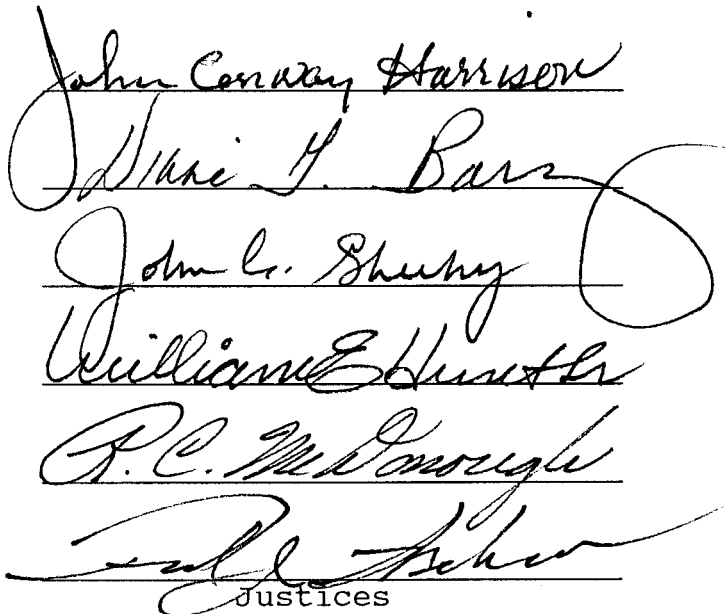 John Conway Harrison
Diane G. Barz
John C. Sheehy
William E Hunt Sr
R. C. McDonough
Justices